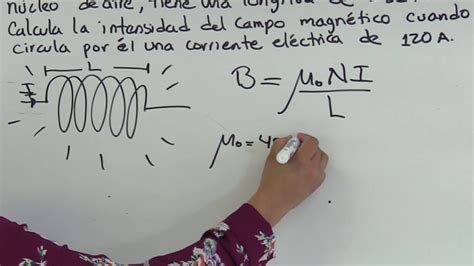 núcleo de aire, tiene una longitud de
Calcula la intensidad del campo magnético cuando
circula por él una corriente eléctrica de 120 A.
L
I
B = μ₀NI
L
μ₀ = 4